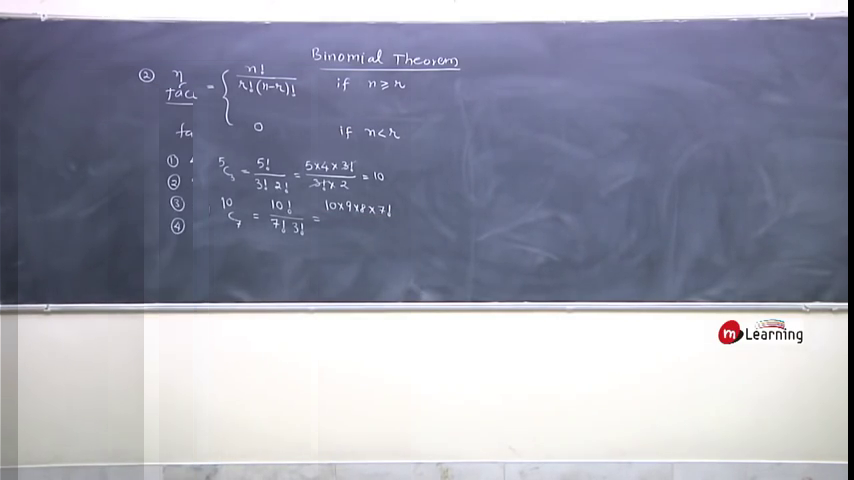 Binomial Theorem
② n = { n! / r!(n-r)! if n ≥ r
0 if n < r
fa
① ⁵C₃ = 5! / 3! 2! = 5×4×3! / 3!×2 = 10
②
③ ¹⁰C₇ = 10! / 7! 3! = 10×9×8×7!
④
m Learning